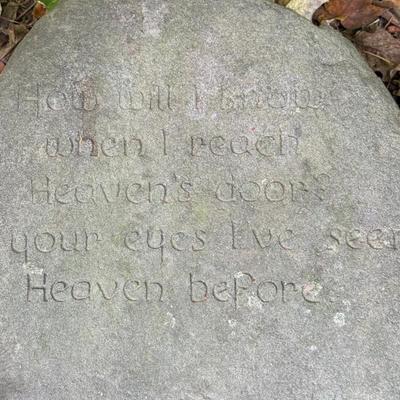 How will I know
when I reach
Heaven's door?
your eyes I've seen
Heaven before